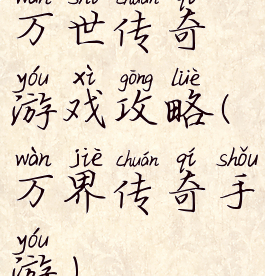 wàn shì chuán qí
万世传奇
yóu xì gōng lüè
游戏攻略(
wàn jiè chuán qí shǒu
万界传奇手
yóu
游)